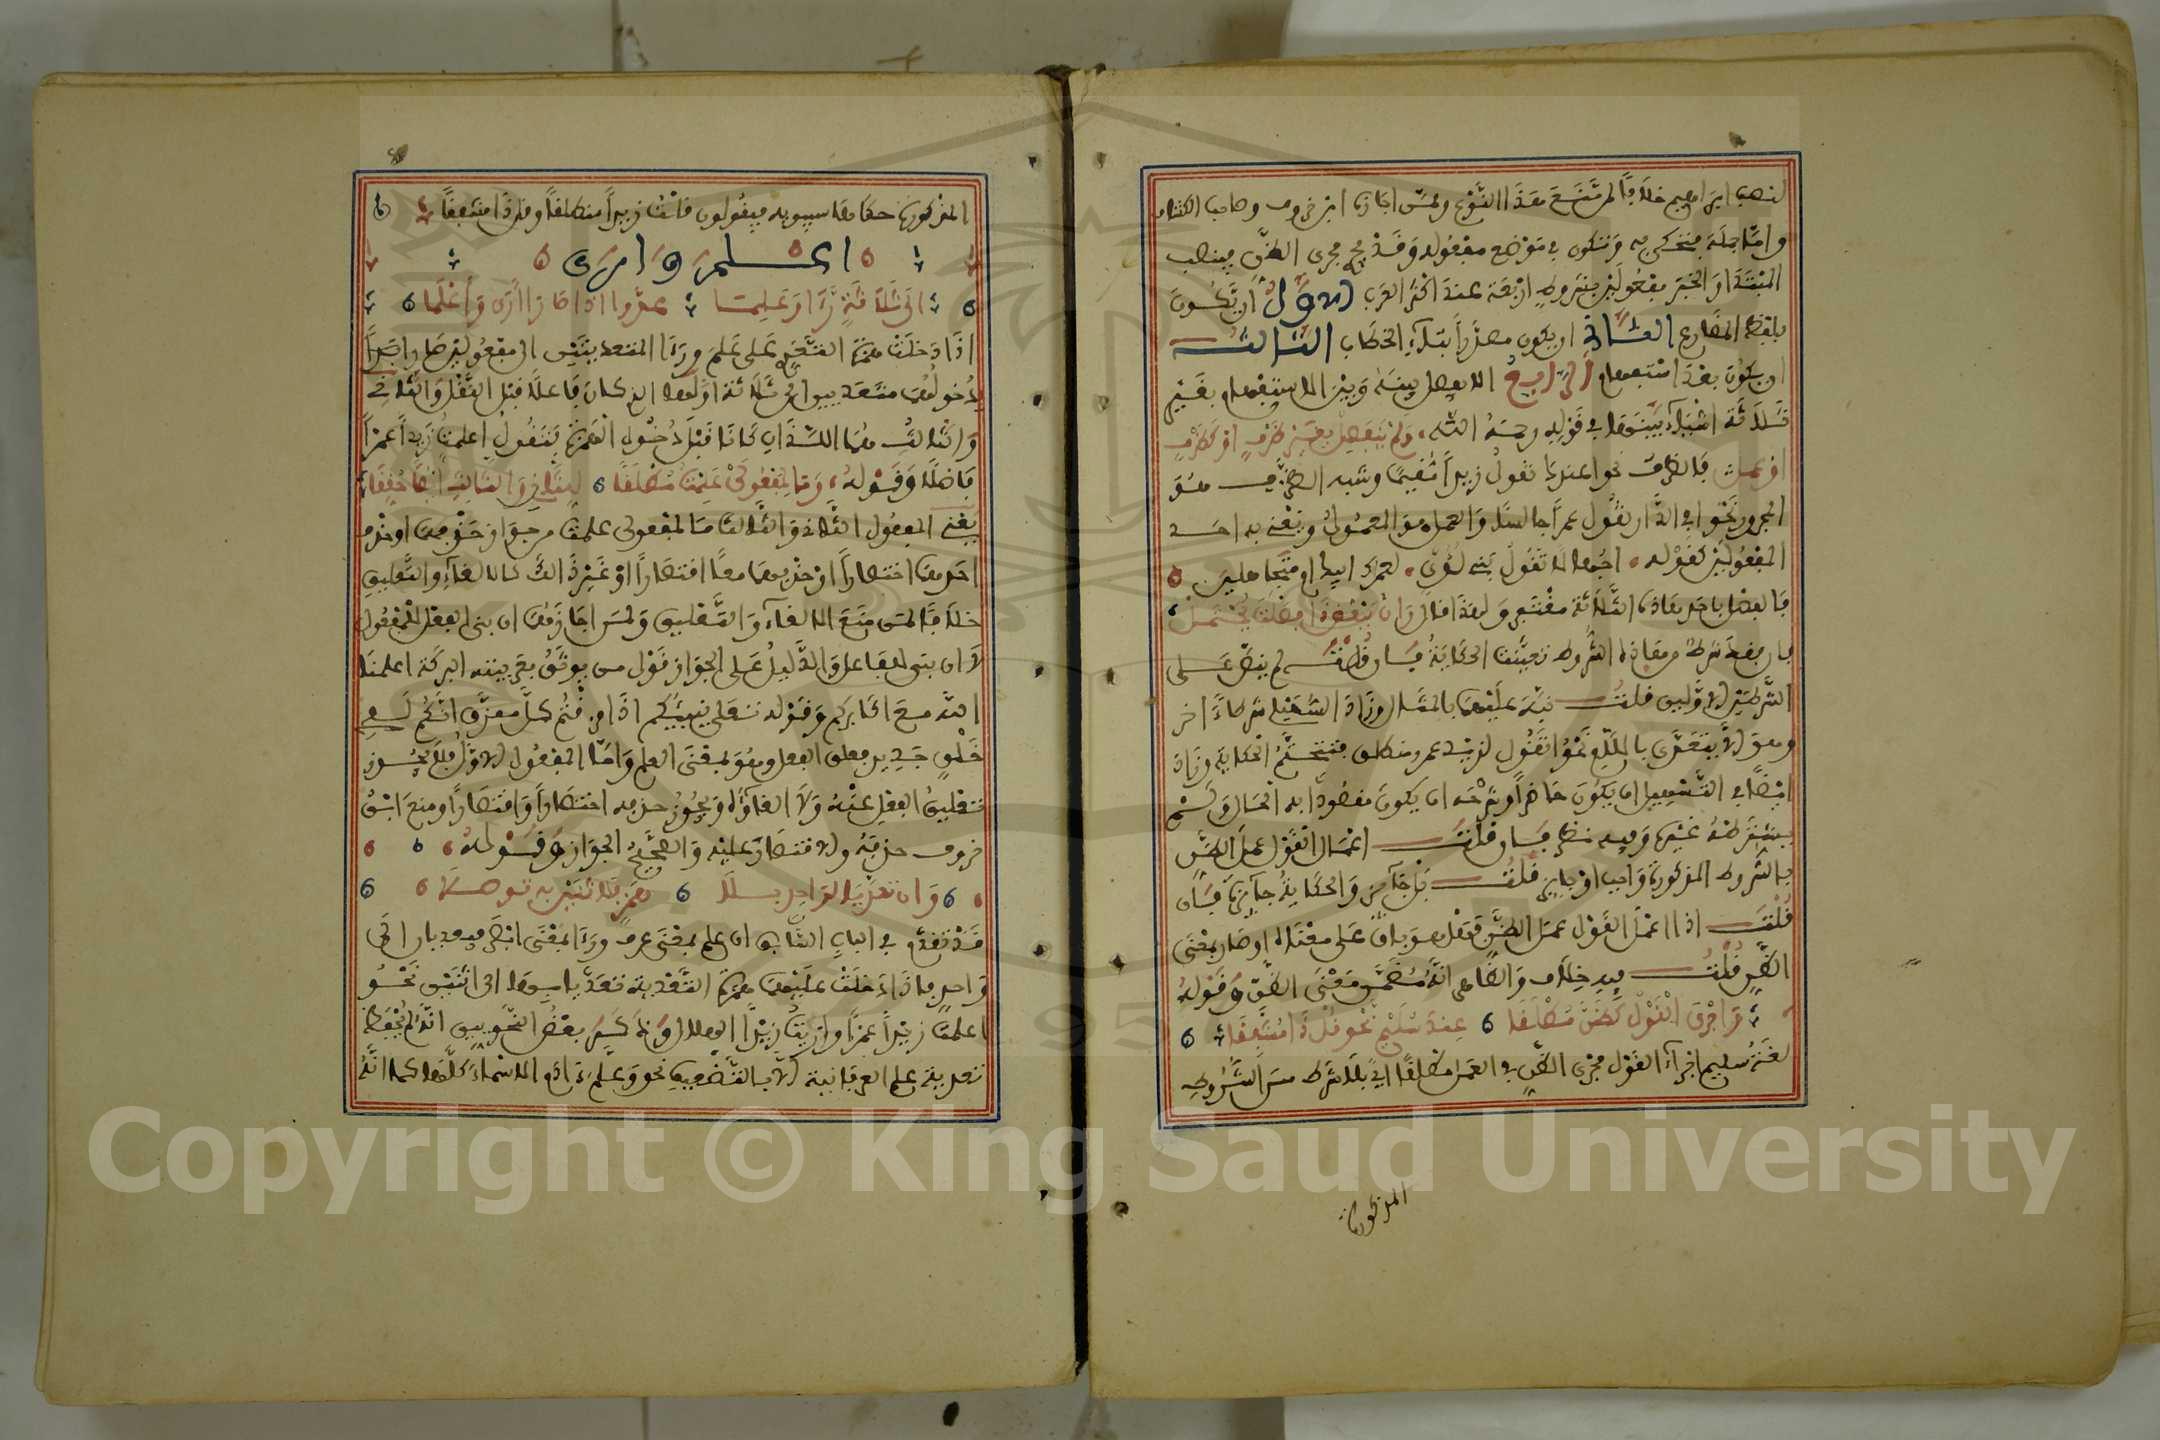 لنصب ابراهيم خلافا لمن منع هذا النوع وممن اجازه ابن خروف وصاحب الكشاف
واما جملة فتحكى به وتكون في موضع مفعوله وقد يجرى مجرى الظن فينصب
المبتدأ والخبر مفعولين بشروط اربعة عند اكثر العرب الأول أن يكون
بلفظ المضارع الثاني ان يكون مصدرا بتاء الخطاب الثالث
ان يكون بعد استفهام الرابع الا يفصل بينه وبين الاستفهام بغير
ثلاثة اشياء بينها في قوله رحمه الله ولم ينفصل بغير ظرف او كظرف
او عمل فالظرف نحو اعندك تقول زيدا مقيما وشبه الظرف هو
المجرور نحو افي الدار تقول عمرا جالسا والعمل هو المعمول ويعني به احد
المفعولين كقوله اجهالا تقول بني لؤي لعمر ابيك ام متجاهلين
فالفصل باحد هذه الثلاثة مغتفر ولهذا قال وان ببعض ذي فصلت يحتمل
فان فقد شرط من هذه الشروط تعينت الحكاية فان قلت لم ينص على
الشرطين الأولين قلت نبه عليهما بالمثال وزاد التسهيل شرطا اخر
وهو الا يتعدى باللام نحو اتقول لزيد عمرو منطلق فتتحتم الحكاية وزاد
ايضا في التسهيل ان يكون حاضرا وشرحه ان يكون مقصودا به الحال ولم
يشترطه غيره وفيه نظر فان قلت اعمال القول عمل الظن
بالشروط المذكورة واجب او جايز قلت بل جايز والحكاية جايزة فان
قلت اذا اعمل القول عمل الظن فهل هو باق على معناه او صار بمعنى
الظن قلت فيه خلاف والظاهر انه مضمن معنى الظن وقوله
واجري القول كظن مطلقا عند سليم نحو قل ذا مشفقا
لغة سليم اجراء القول مجرى الظن في العمل مطلقا اي بلا شرط من الشروط
المذكورة
المذكورة حكاها سيبويه فيقولون قلت زيدا منطلقا وقل ذا مشفقا
اعلم وارى
الى ثلاثة رأى وعلما عدوا اذا صارا ارى واعلما
اذا دخلت همزة النقل على علم ورأى المتعديتين الى مفعولين صارا
بدخولها متعديين الى ثلاثة اولها الذي كان فاعلا قبل النقل والثاني
والثالث هما اللذان كانا قبل دخول الهمزة فتقول اعلمت زيدا عمرا
فاضلا وقوله وما لمفعولي علمت مطلقا للثان والثالث ايضا حققا
يعني المفعول الثاني والثالث ما لمفعولي علمت من جواز حذفهما او حذف
احدهما اختصارا او حذفهما معا اقتصارا او غير ذلك كالالغاء والتعليق
خلافا لمن منع الالغاء والتعليق ولمن اجازهما ان بني الفعل للمفعول
لا ان بني للفاعل والدليل على الجواز قول من يوثق بعربيته البركة اعلمنا
الله مع الاكابر وقوله تعلى ينبيكم اذا مزقتم كل ممزق انكم لفي
خلق جديد فعلق الفعل وهو بمعنى العلم واما المفعول الأول فلا يجوز
تعليق الفعل عنه ولا الغاؤه ويجوز حذفه اختصارا واقتصارا ومنع ابن
خروف حذفه والاقتصار عليه والصحيح الجواز وقوله
وان تعديا لواحد بلا همز فلاثنين به توصلا
قد تقدم في الباب السابق ان علم بمعنى عرف ورأى بمعنى ابصر متعديان الى
واحد فاذا دخلت عليهما همزة التعدية تعديا بسببها الى اثنين نحو
اعلمت زيدا عمرا واريت زيدا الهلال وذكر بعض النحويين انه لم يحفظ
تعدية علم العرفانية الا بالتضعيف نحو وعلم ءادم الاسماء كلها كما انه
Copyright © King Saud University